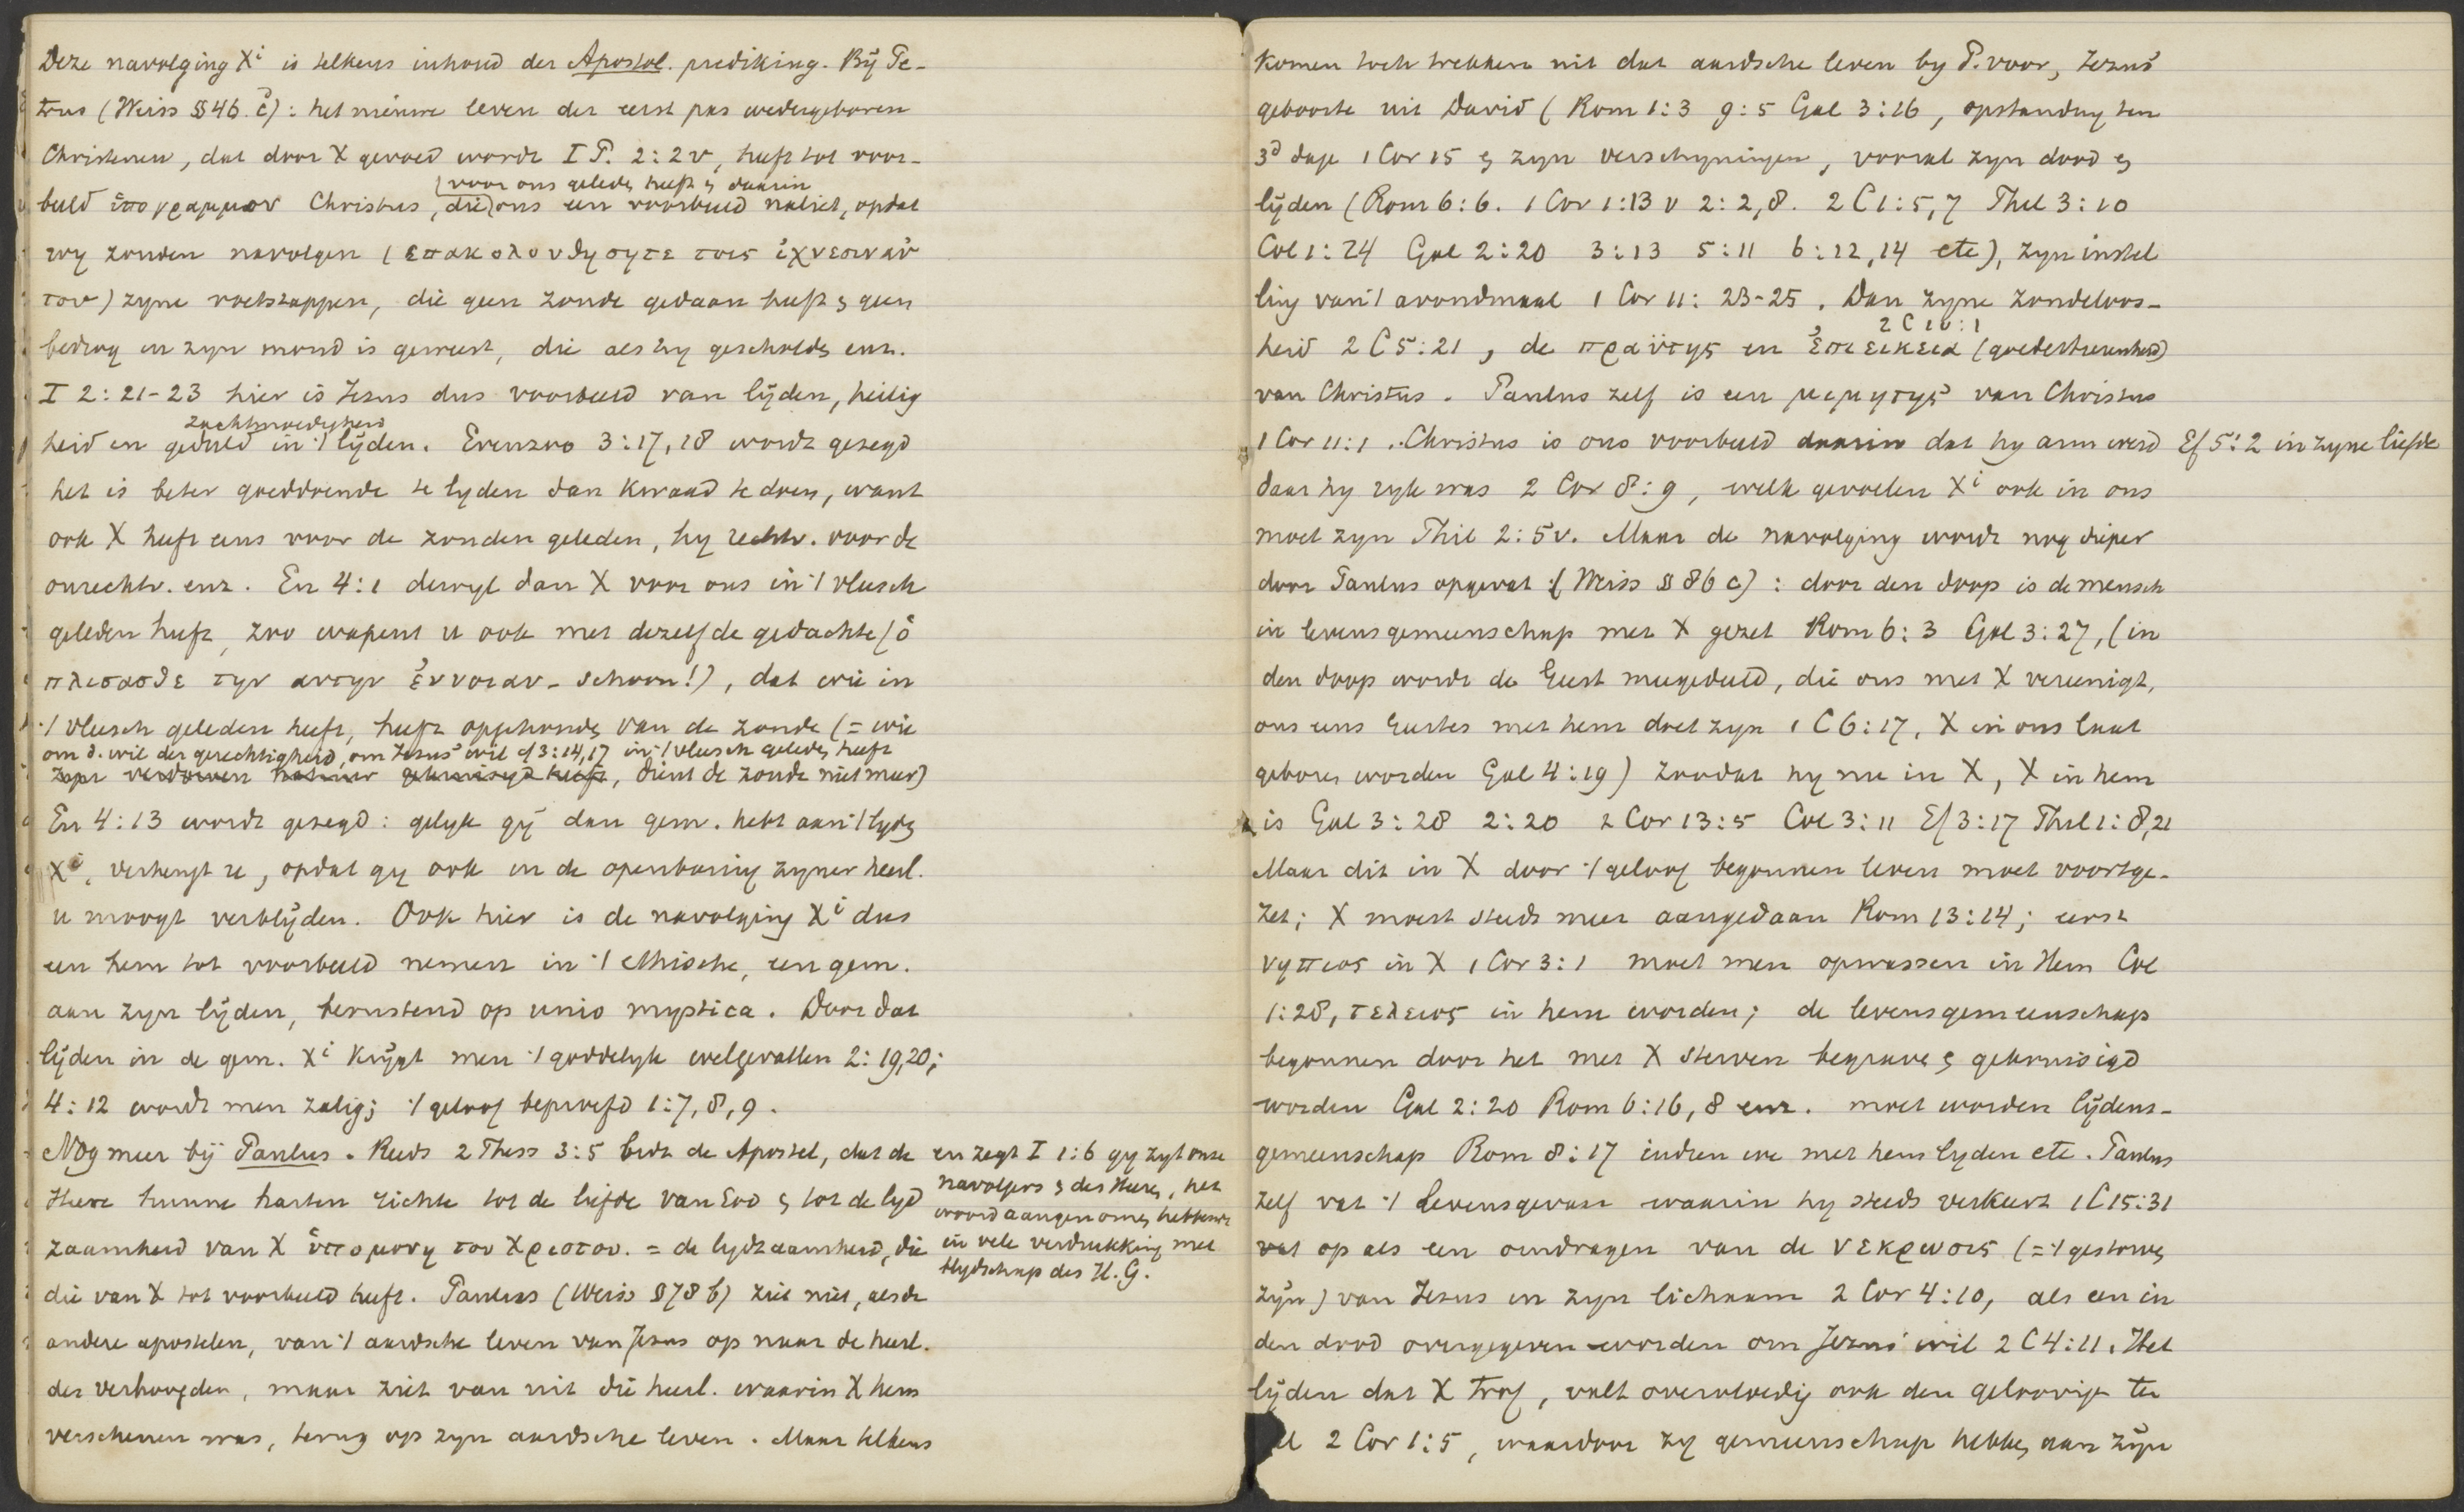 Deze navolging Xi is telkens inhoud der Apostol. prediking. Bij Pe-
trus (Weiss §46. c): het nieuwe leven der eerst pas wedergeboren
Christenen, dat door X gevoed wordt I P. 2:2v, heeft tot voor-
(voor ons geleden heeft & daarin
beeld ὑπογραμμον Christus, die) ons een voorbeeld naliet, opdat
wy zouden navolgen (επακολουθησητε τοις ἰχνεσιν αὐ
του) zyne voetstappen, die geen zonde gedaan heeft & geen
bedrog in zyn mond is geweest, die als hy gescholden enz.
I 2:21-23 hier is Jezus dus voorbeeld van lijden, heilig
zachtmoedigheid
heid en geduld in 't lijden. Evenzoo 3:17,18 wordt gezegd
het is beter goeddoende te lyden dan kwaad te doen, want
ook X heeft eens voor de zonden geleden, hy rechtv. voor de
onrechtv. enz. En 4:1 dewyl dan X voor ons in 't vleesch
geleden heeft, zoo wapent u ook met dezelfde gedachte (ὁ
πλισασθε την αυτην ἐννοιαν - schoon!), dat wie in
't vleesch geleden heeft, heeft opgehouden van de zonde (= wie
om d. wil der gerechtigheid, om Jezus' wil cf 3:14,17 in 't vleesch geleden heeft
zyn verdorven natuur gekruisigd heeft, dient de zonde niet meer)
En 4:13 wordt gezegd: gelyk gij dan gem. hebt aan 't lyden
Xi, verheugt u, opdat gy ook in de openbaring zyner heerl.
u moogt verblijden. Ook hier is de navolging Xi dus
een hem tot voorbeeld nemen in 't ethische, een gem.
aan zyn lijden, berustend op unio mystica. Door dat
lijden in de gem. Xi krijgt men 't goddelyk welgevallen 2:19,20;
4:12 wordt men zalig; 't geloof beproefd 1:7,8,9.
Nog meer bij Paulus. Reeds 2 Thess 3:5 bidt de Apostel, dat de
Heere hunne harten richte tot de liefde van God & tot de lyd
zaamheid van X ὑπομονη του Χριστου. = de lydzaamheid, die
die van X tot voorbeeld heeft. Paulus (Weiss §78 b) ziet niet, als de
andere apostelen, van 't aardsche leven van Jezus op naar de heerl.
der verhoogden, maar ziet van uit die heerl. waarin X hem
verschenen was, terug op zyn aardsche leven. Maar telkens
en zegt I 1:6 gy zyt onze
navolgers & des Heeren, het
woord aangenomen hebbende
in vele verdrukking met
blydschap des H. G.
komen toch trekken uit dat aardsche leven by P. voor, Jezus'
geboorte uit David (Rom 1:3 9:5 Gal 3:16, opstanding ten
3d dage 1 Cor 15 & zyn verschyningen, vooral zyn dood &
lijden (Rom 6:6. 1 Cor 1:13 v 2:2,8. 2 C 1:5,7 Phil 3:10
Col 1:24 Gal 2:20 3:13 5:11 6:12,14 etc), zyn instel
ling van 't avondmaal 1 Cor 11:23-25. Dan zyne zondeloos-
2 C 10:1
heid 2 C 5:21, de πραϋτης en ἐπιεικεια (goedertierenheid)
van Christus. Paulus zelf is een μιμητης van Christus
1 Cor 11:1. Christus is ons voorbeeld daarin dat hy arm werd Ef 5:2 in zyne liefde
daar hy ryk was 2 Cor 8:9, welk gevoelen Xi ook in ons
moet zyn Phil 2:5v. Maar de navolging wordt nog dieper
door Paulus opgevat (Weiss §86 c): door den doop is de mensch
in levensgemeenschap met X gezet Rom 6:3 Gal 3:27, (in
den doop wordt de Geest meegedeeld, die ons met X vereenigt,
ons eens Geestes met hem doet zyn 1 C 6:17, X in ons laat
geboren worden Gal 4:19) zoodat hy nu in X, X in hem
is Gal 3:28 2:20 2 Cor 13:5 Col 3:11 Ef 3:17 Phil 1:8,21
Maar dit in X door 't geloof begonnen leven moet voortge-
zet; X moet steeds meer aangedaan Rom 13:14; eerst
νηπιος in X 1 Cor 3:1 moet men opwassen in Hem Col
1:28, τελειος in hem worden; de levensgemeenschap
begonnen door het met X sterven begraven & gekruisigd
worden Gal 2:20 Rom 6:16,8 enz. moet worden lijdens-
gemeenschap Rom 8:17 indien we met hem lyden etc. Paulus
zelf vat 't levensgevaar waarin hy steeds verkeert 1 C 15:31
vat op als een omdragen van de νεκρωσις (= 't gestorven
zijn) van Jezus in zyn lichaam 2 Cor 4:10, als een in
den dood overgegeven worden om Jezus' wil 2 C 4:11. Het
lijden dat X trof, valt overvloedig ook den geloovigen ten
el 2 Cor 1:5, waardoor zy gemeenschap hebben aan zijn